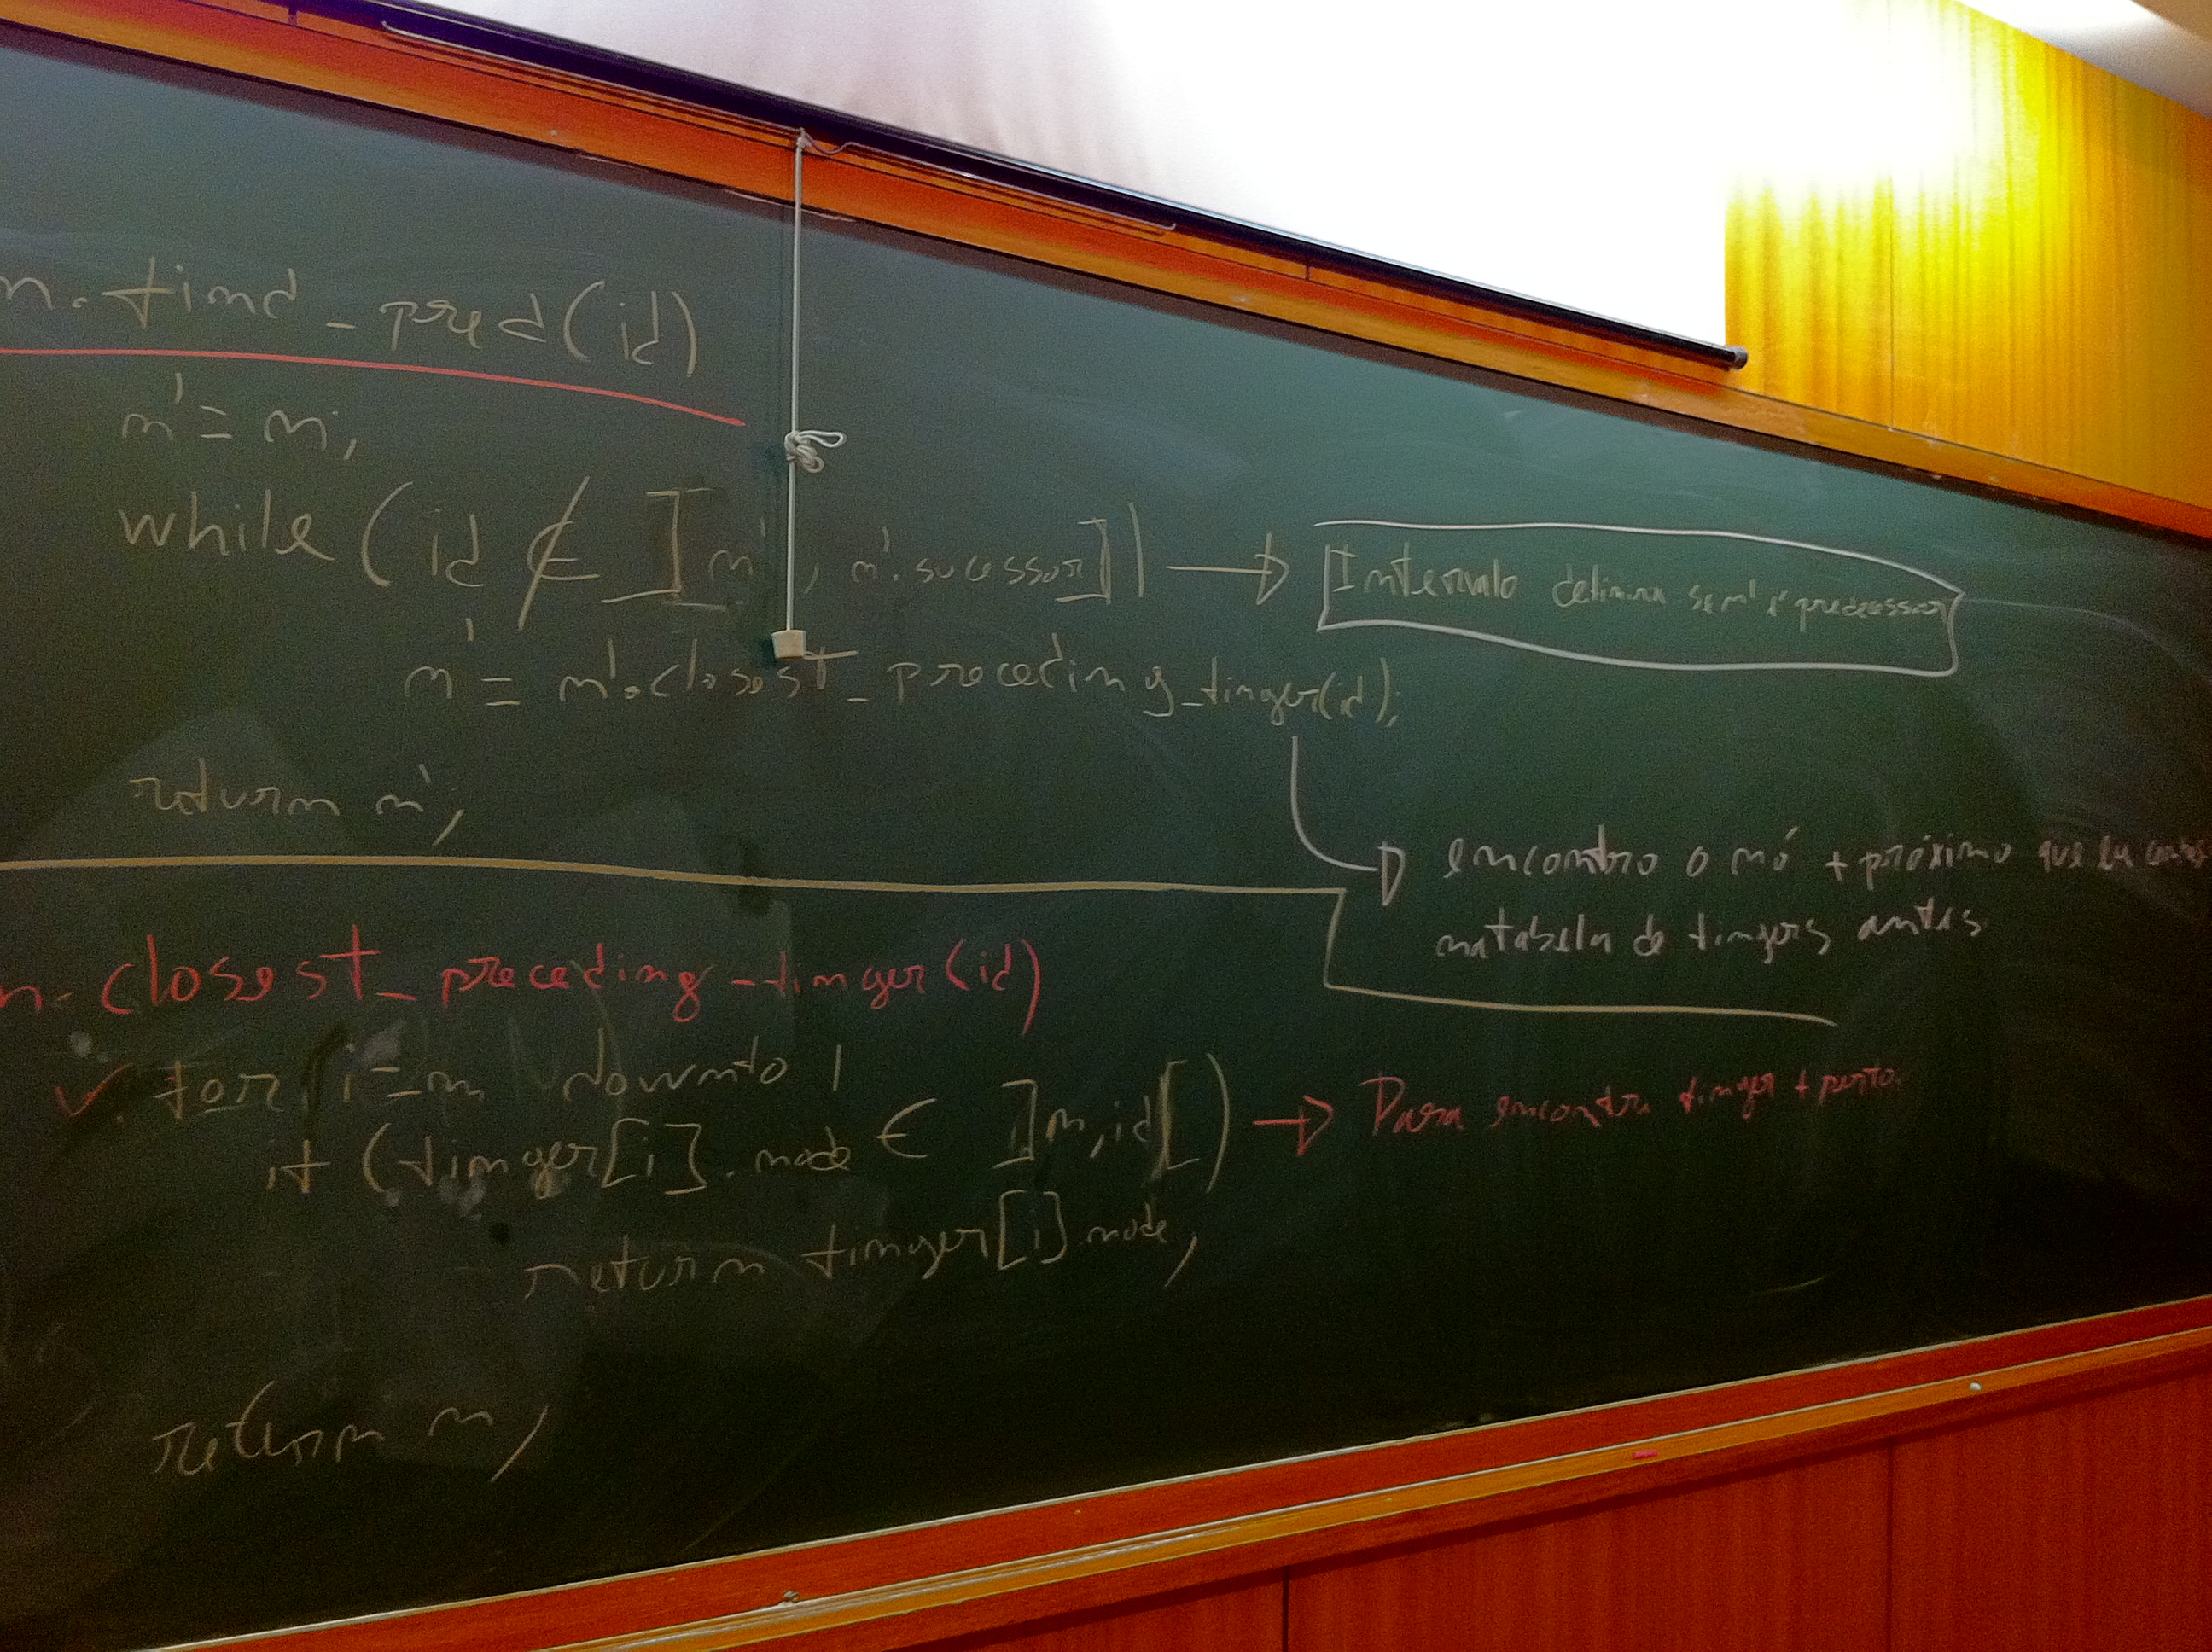 n.find_pred(id)
n' = n;
while (id ∉ ]n', n'.sucessor])
→ Intervalo define se n' é predecessor
n' = n'.closest_preceding_finger(id);
return n';
→ encontro o nó + próximo que eu
na tabela de fingers antes
n.closest_preceding_finger(id)
for i=m downto 1
if (finger[i].node ∈ ]n,id[) → Para encontra finger + perto.
return finger[i].node;
return n;